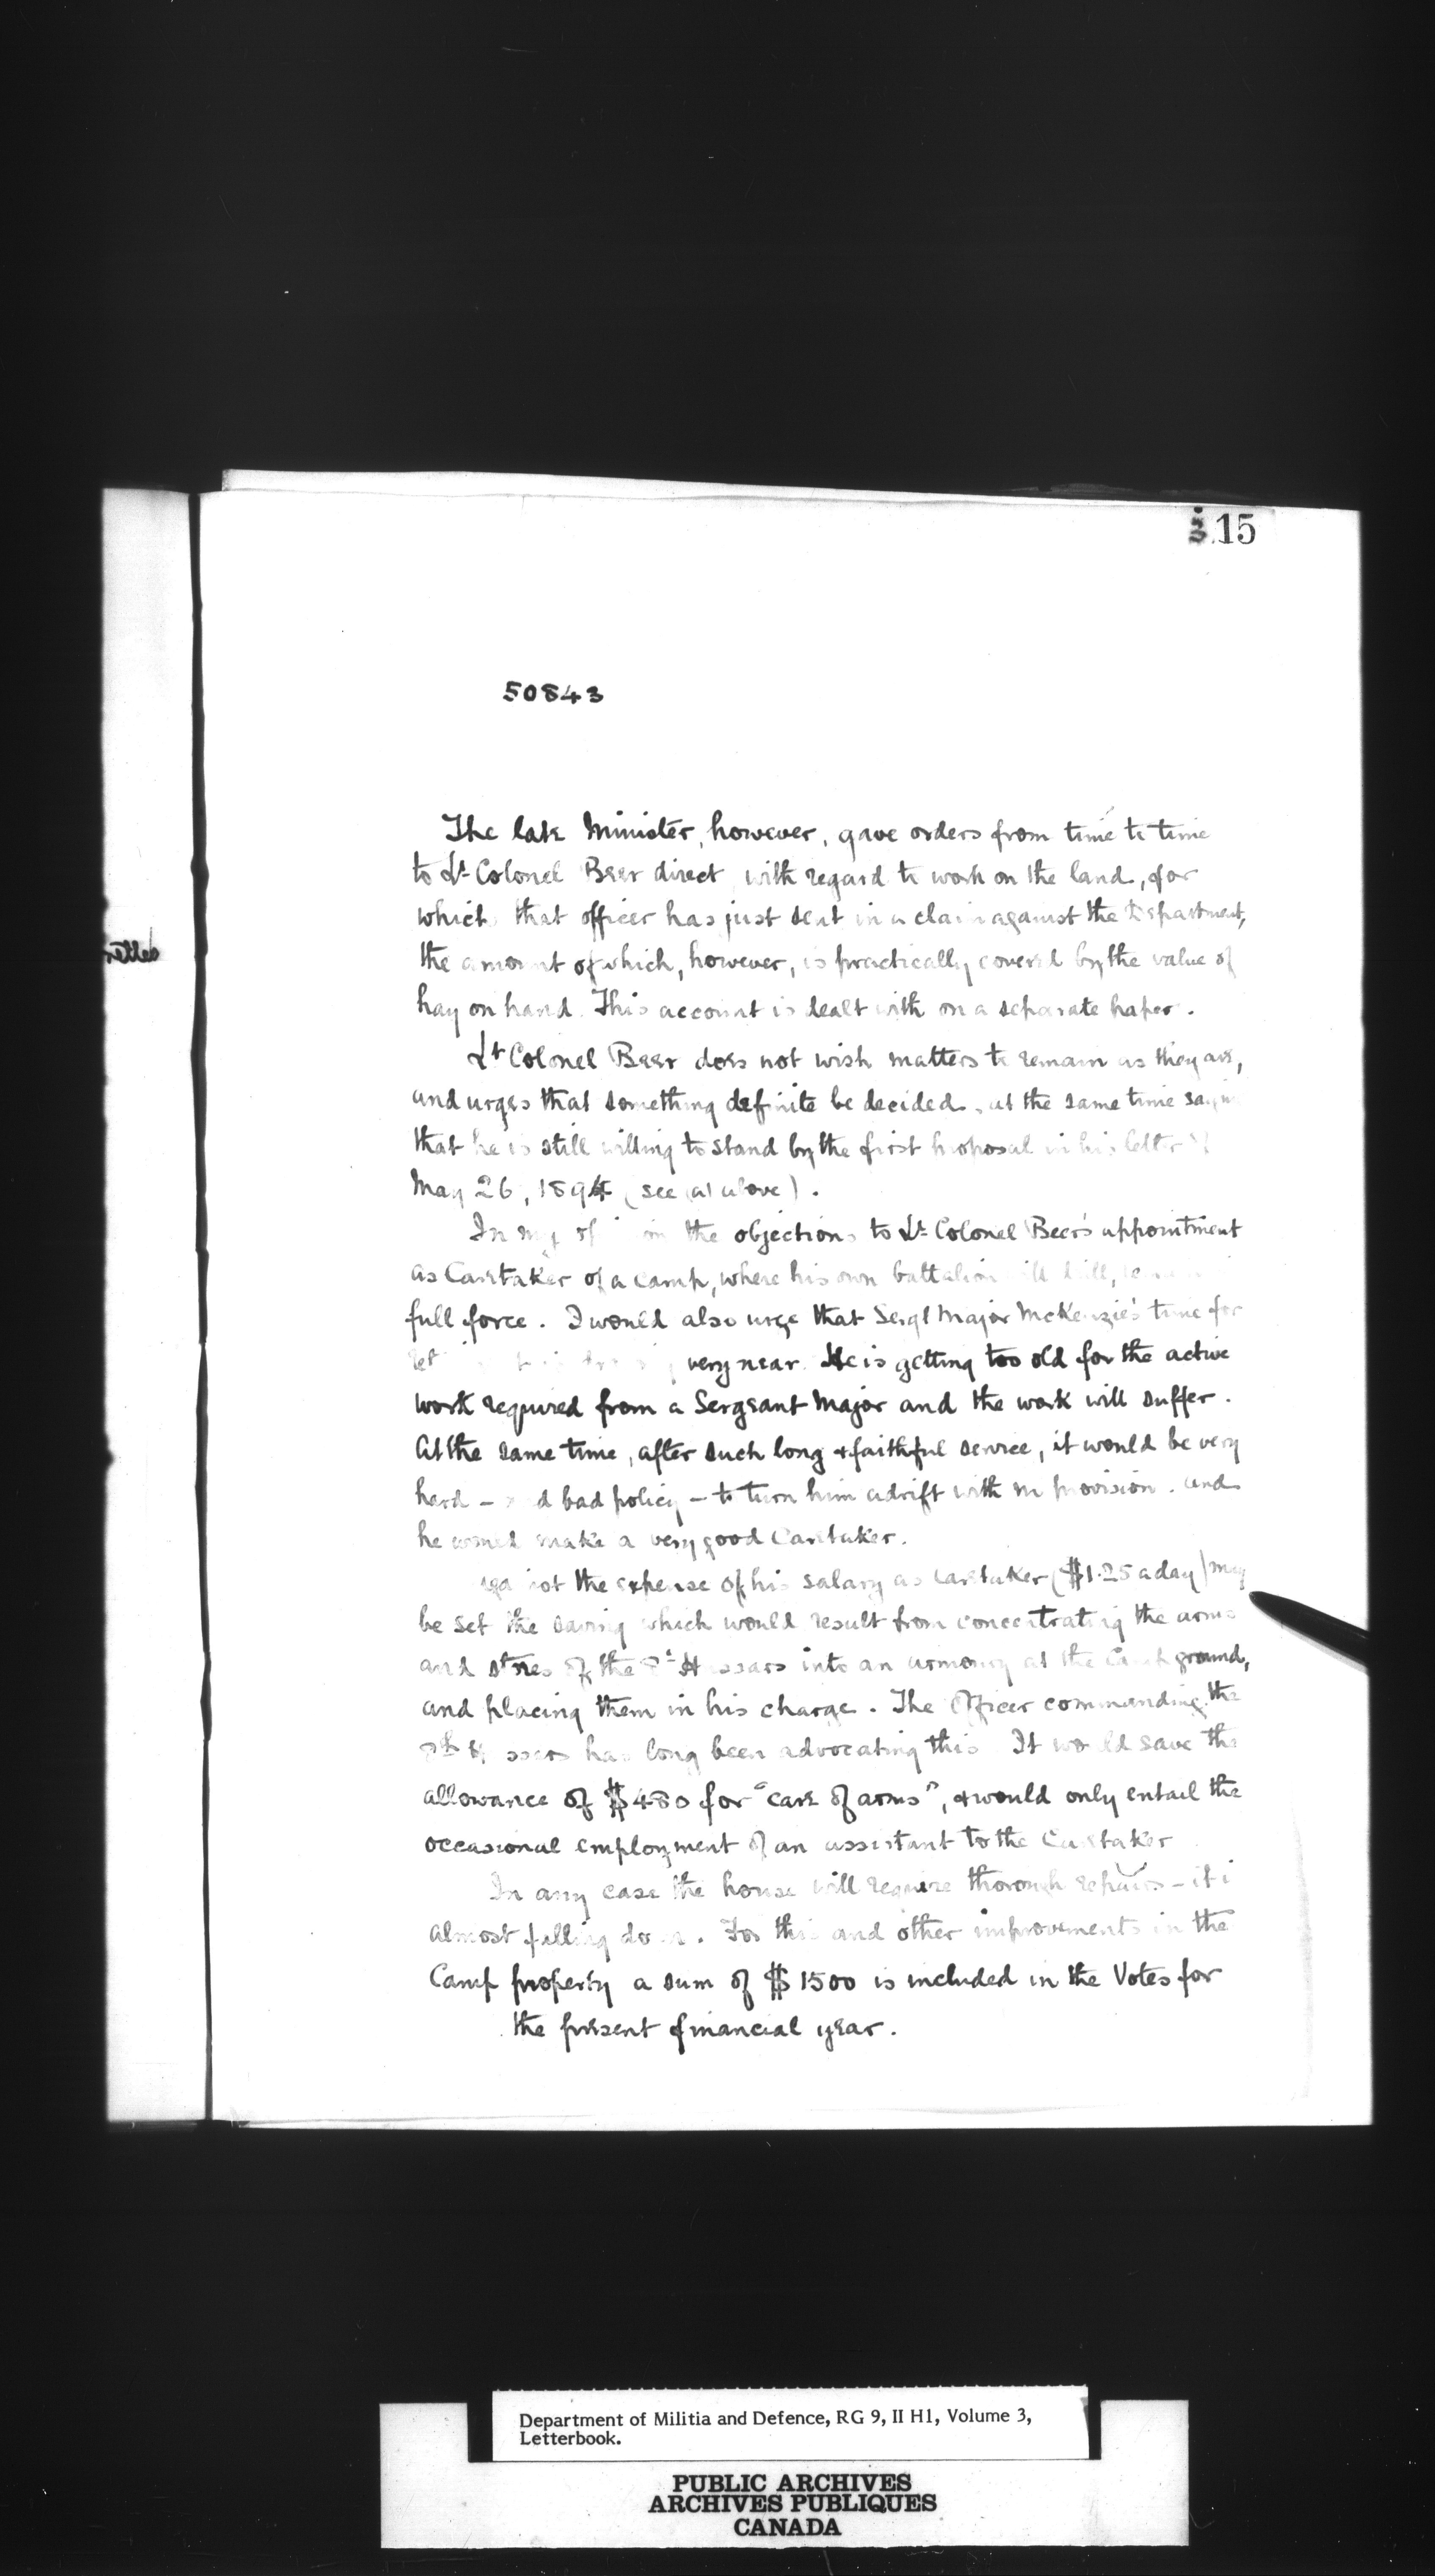 315
50843
The late Minister, however, gave orders from time to time
to Lt Colonel Beer direct with regard to work on the land, for
which that officer has just sent in a claim against the Department,
the amount of which, however, is practically covered by the value of
hay on hand. This account is dealt with on a separate paper.
Lt Colonel Beer does not wish matters to remain as they are,
and urges that something definite be decided, at the same time saying
that he is still willing to stand by the first proposal in his letter of
May 26, 1894 (see (a) above).
In my opinion the objections to Lt Colonel Beer's appointment
as Caretaker of a camp, where his own battalion will drill,
full force. I would also urge that Sergt Major McKenzie's time for
very near. He is getting too old for the active
work required from a Sergeant Major and the work will suffer.
At the same time, after such long & faithful service, it would be very
hard - and bad policy - to turn him adrift with no provision. and
he would make a very good Caretaker.
Against the expense of his salary as Caretaker ($1.25 a day) may
be set the saving which would result from concentrating the arms
and stores of the 8th Hussars into an armoury at the Camp ground,
and placing them in his charge. The Officer commanding the
8th Hussars has long been advocating this. It would save the
allowance of $480 for "care of arms", & would only entail the
occasional employment of an assistant to the Caretaker
In any case the house will require thorough repairs - it is
almost falling down. For this and other improvements in the
Camp property a sum of $1500 is included in the Votes for
the present financial year.
Department of Militia and Defence, RG 9, II H1, Volume 3,
Letterbook.
PUBLIC ARCHIVES
ARCHIVES PUBLIQUES
CANADA